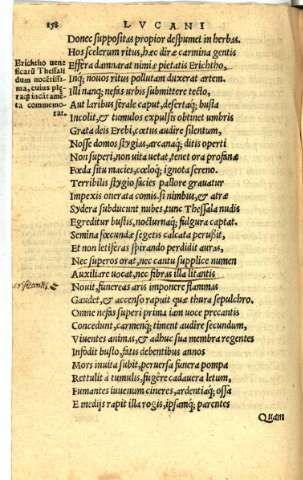 158 LVCANI
Donec suppositas propior despumet in herbas.
Hos scelerum ritus, hæc diræ carmina gentis
Effera damnarat nimiæ pietatis Erichtho,
Inq; nouos ritus pollutam duxerat artem.
Illi nanq; nefas urbis submittere tecto,
Aut laribus ferale caput, desertaq; busta
Incolit, & tumulos expulsis obtinet umbris
Grata deis Erebi, cœtus audire silentum,
Nosse domos stygias, arcanaq; ditis operti
Non superi, non uita uetat, tenet ora profanæ
Fœda situ macies, cœloq; ignota sereno.
Terribilis stygio facies pallore grauatur
Impexis onerata comis. si nimbus, & atræ
Sydera subducunt nubes, tunc Thessala nudis
Egreditur bustis, nocturnaq; fulgura captat.
Semina fœcundæ segetis calcata perußit,
Et non letiferas spirando perdidit auras,
Nec superos orat, nec cantu supplice numen
Auxiliare uocat, nec fibras illa litantis
Nouit, funereas aris imponere flammas
Gaudet, & accenso rapuit quæ thura sepulchro.
Omne nefas superi prima iam uoce precantis
Concedunt, carmenq; timent audire secundum,
Viuentes animas, & adhuc sua membra regentes
Infodit busto, fatis debentibus annos
Mors inuita subit, peruersa funera pompa
Rettulit a tumulis, fugêre cadauera letum,
Fumantes iuuenum cineres, ardentiaq; ossa
E medijs rapit illa rogis, ipsamq; parentes
Quam
Erichtho uene
ficarũ Thessali
dum nocẽtissi-
ma, cuius ple-
raq; incitamẽ-
ta commemo-
rat.